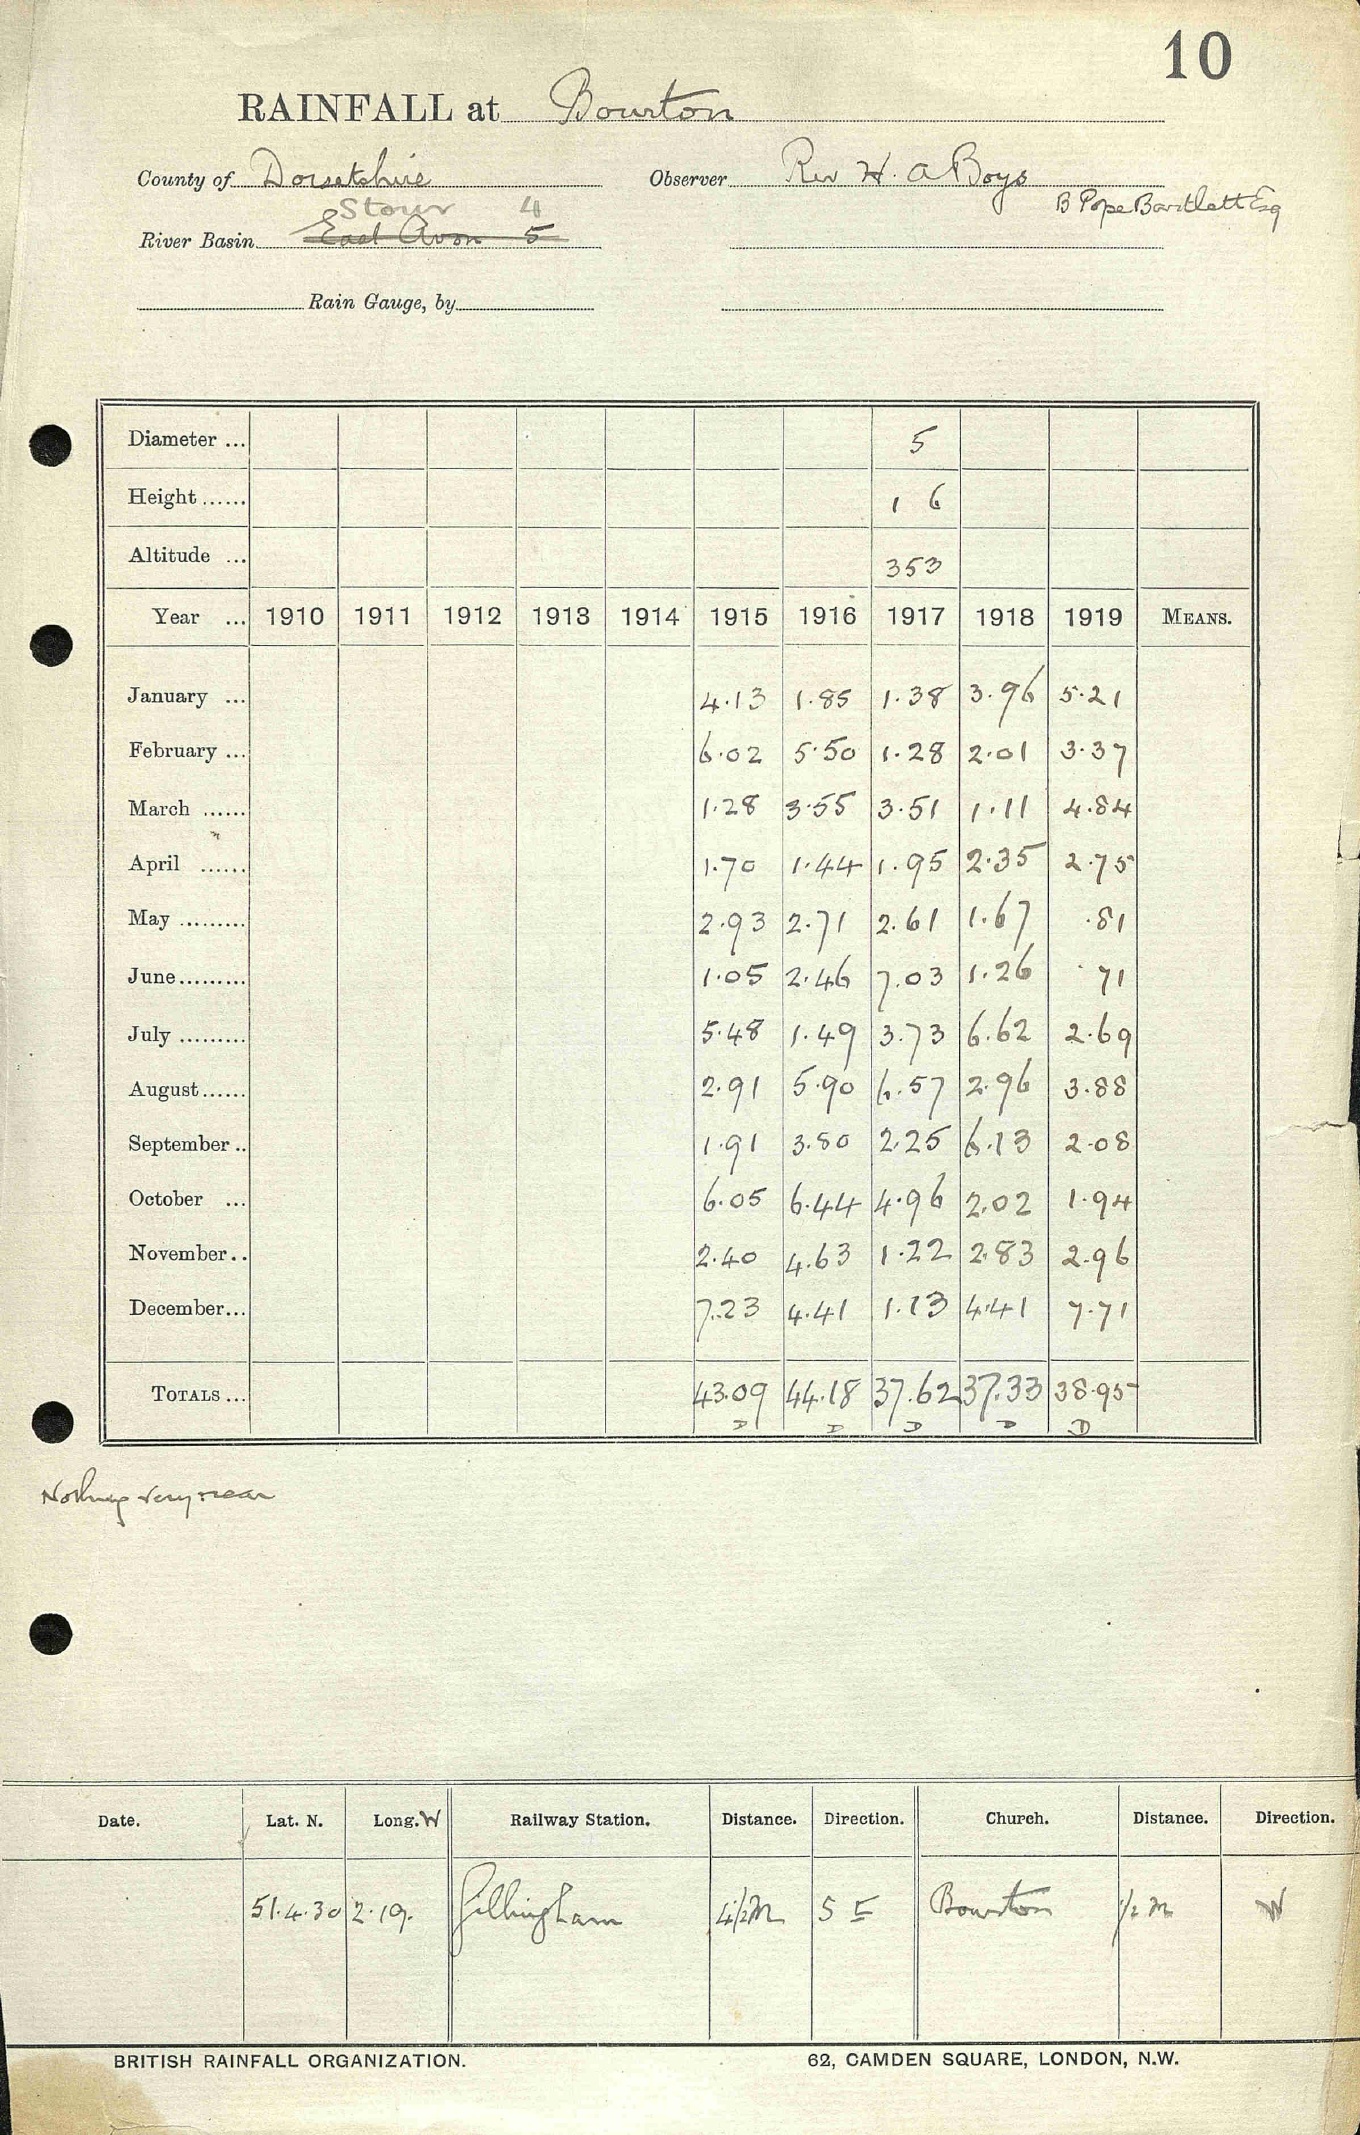 10
RAINFALL at Bourton
County of Dorsetshire Observer Rev H. A Boys
Stour 4 B Pope Bartlett Esq
River Basin East Avon 5
Rain Gauge, by
Diameter ... 5
Height ...... 1 6
Altitude ... 353
Year ... 1910 1911 1912 1913 1914 1915 1916 1917 1918 1919 MEANS.
January ... 4.13 1.85 1.38 3.96 5.21
February ... 6.02 5.50 1.28 2.01 3.37
March ...... 1.28 3.55 3.51 1.11 4.84
April ...... 1.70 1.44 1.95 2.35 2.75
May ......... 2.93 2.71 2.61 1.67 .81
June......... 1.05 2.46 7.03 1.26 .71
July ......... 5.48 1.49 3.73 6.62 2.69
August...... 2.91 5.90 6.57 2.96 3.88
September .. 1.91 3.80 2.25 6.13 2.08
October ... 6.05 6.44 4.96 2.02 1.94
November.. 2.40 4.63 1.22 2.83 2.96
December... 7.23 4.41 1.13 4.41 7.71
TOTALS ... 43.09 44.18 37.62 37.33 38.95
D D D D D
Nothing very near
Date. Lat. N. Long. W Railway Station. Distance. Direction. Church. Distance. Direction.
51.4.30 2.19. Gillingham 4½M S E Bourton ½ m W
BRITISH RAINFALL ORGANIZATION. 62, CAMDEN SQUARE, LONDON, N.W.